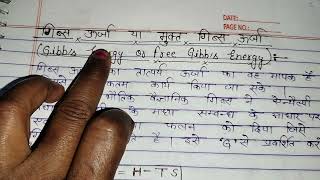 DATE:
PAGE NO.:
गिब्स ऊर्जा या मुक्त गिब्स ऊर्जा
(Gibb's Energy or free Gibb's Energy):-
गिब्स का तात्पर्य ऊर्जा का वह मापक है
कार्य किया जा सके।
भौतिक वैज्ञानिक गिब्स ने एन्थैल्पी
के मध्य सम्बन्ध के आधार पर
फलन को दिया जिसे
है। इसे 'G' से प्रदर्शित करते
= H - TS